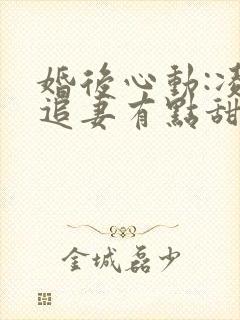 婚後心動:凌
追妻有點甜
金城磊少